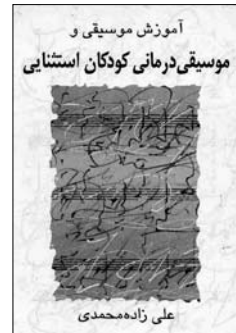 آموزش موسیقی و
موسیقی‌درمانی کودکان استثنایی
علی زاده‌محمدی